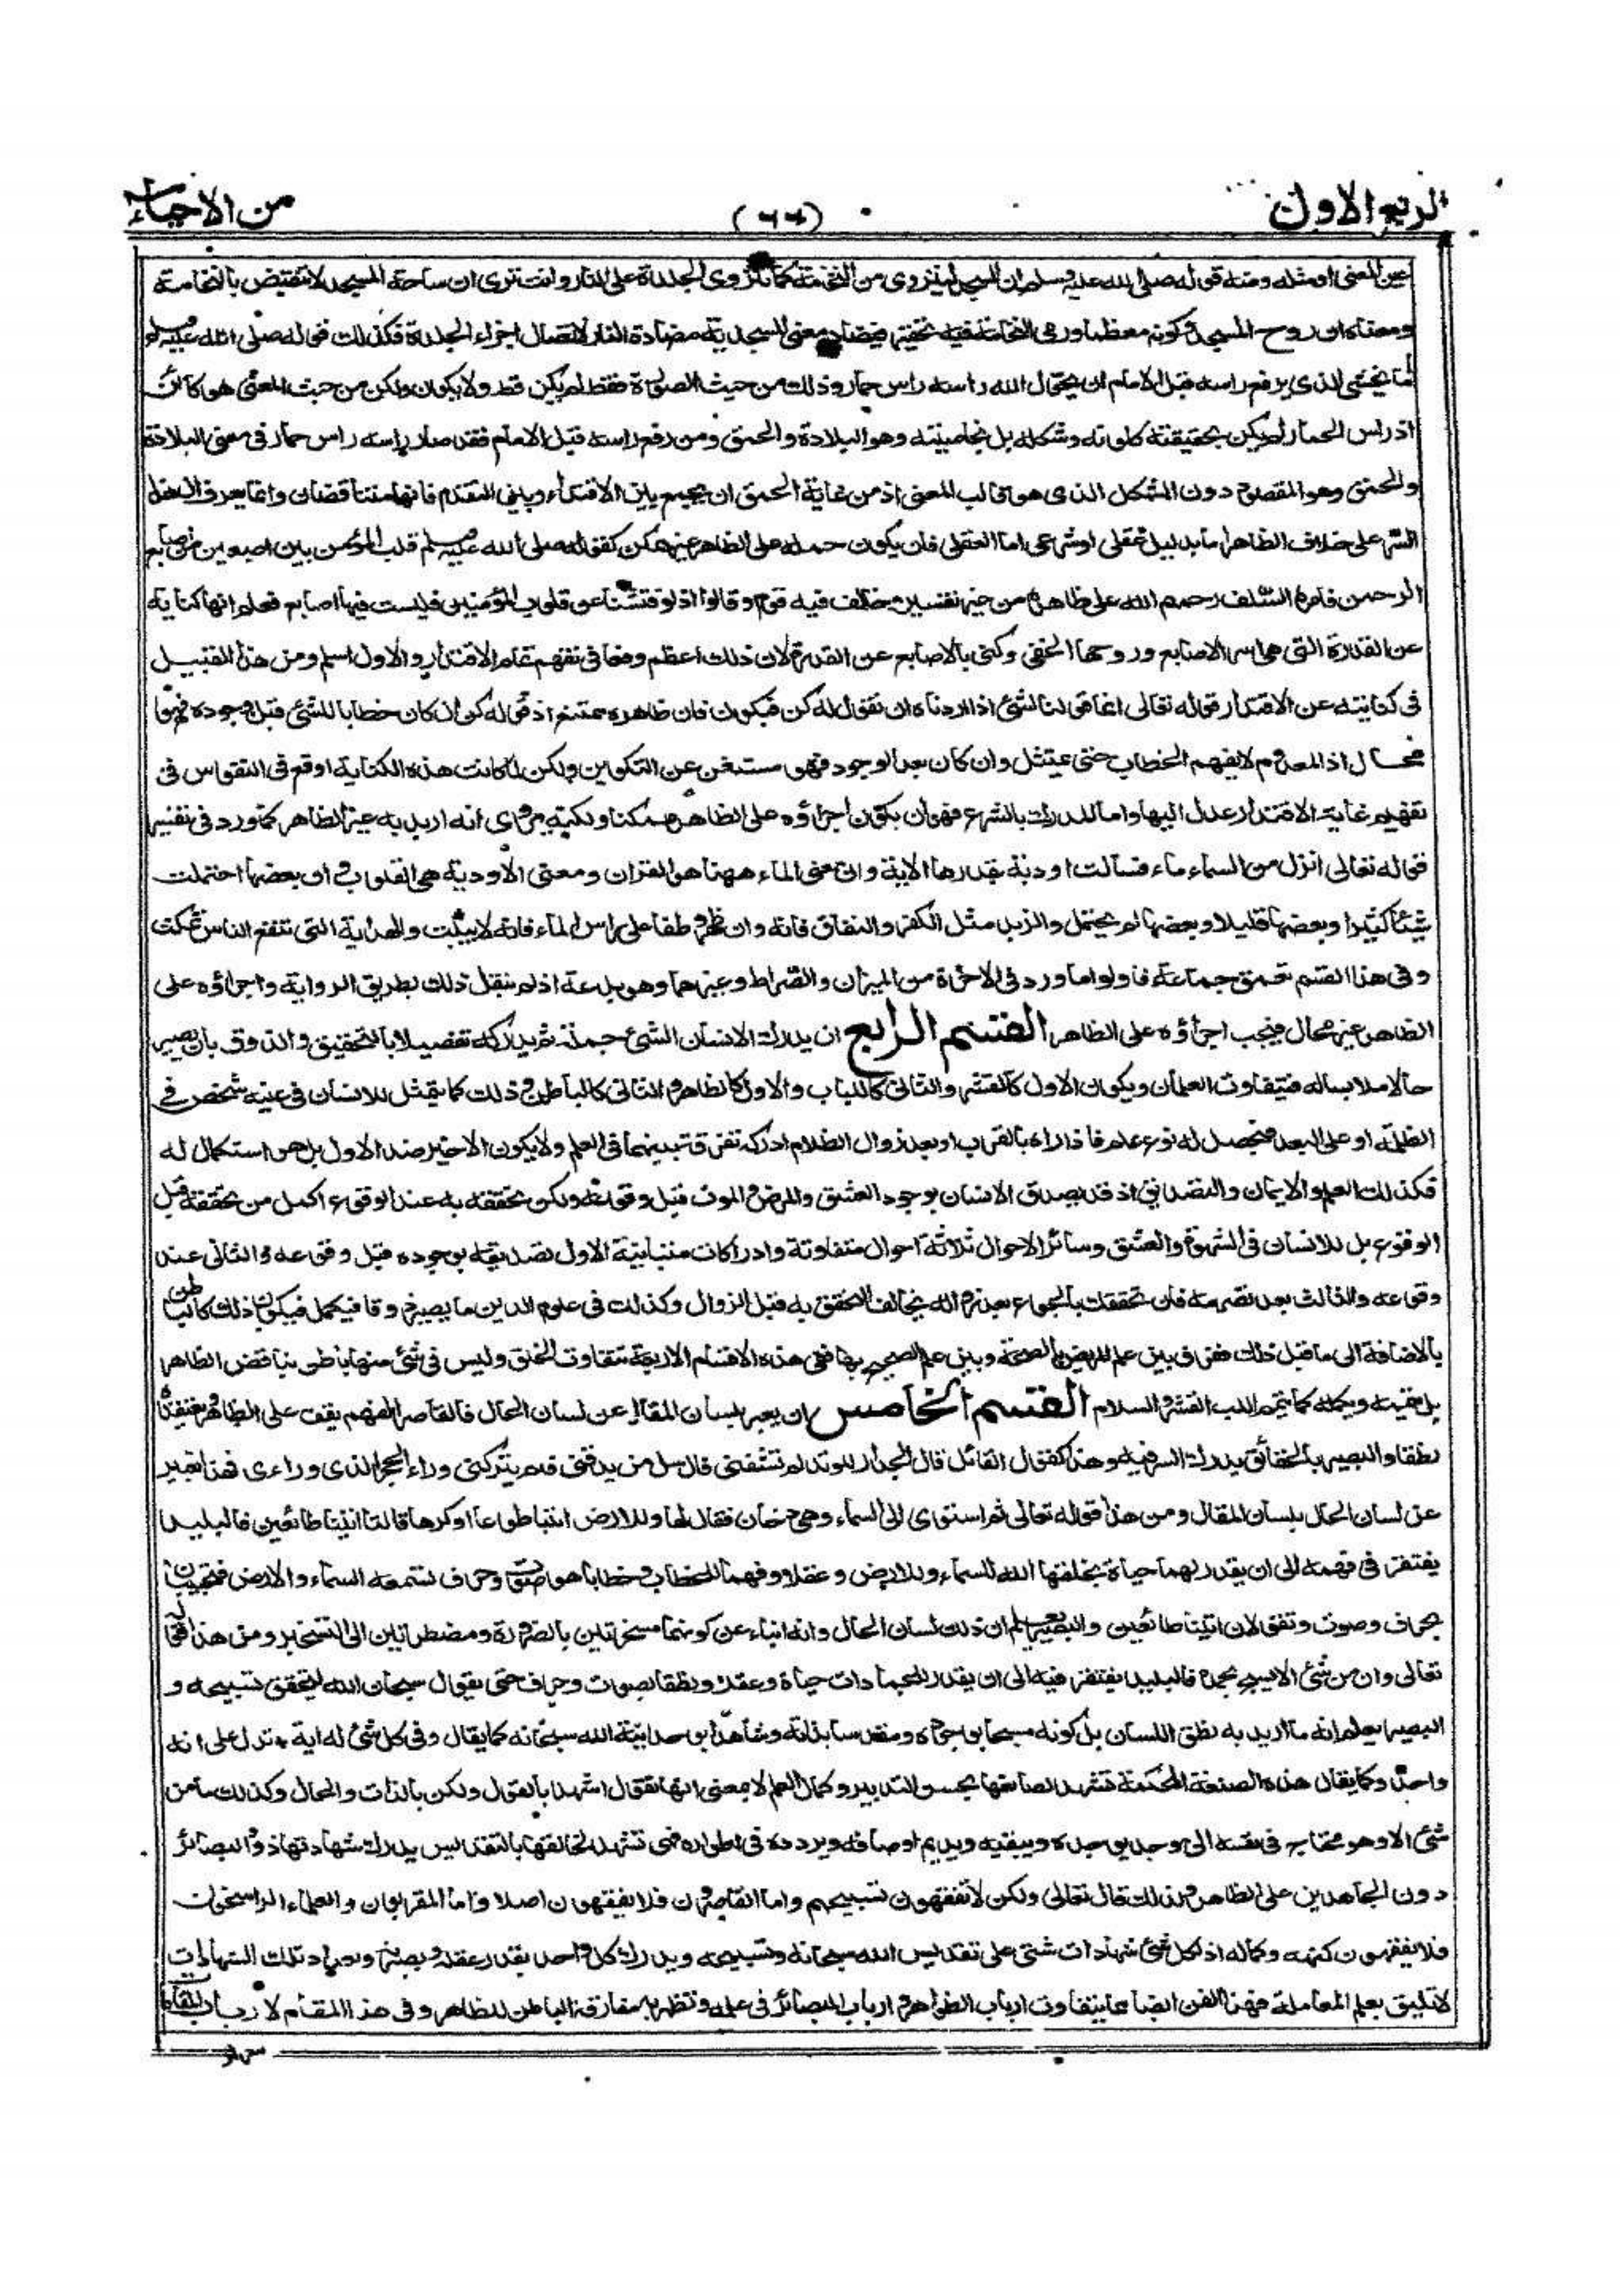 الربع الاول
(٦٦)
من الاحياء
عين المعنى او مثله ومنه قوله صلى الله عليه وسلم ان المسجد لينزوى من النخامة كما تنزوى الجلدة على النار وانت ترى ان ساحة المسجد لا تنقبض بالنخامة
ومعناه ان روح المسجد كونه معظما ورمى النخامة فيه تحقير فيضاد معنى المسجدية مضادة النار لاتصال اجزاء الجلدة فكذلك قوله صلى الله عليه وسلم
اما يخشى الذى يرفع راسه قبل الامام ان يحول الله راسه راس حمار وذلك من حيث الصورة فقط لم يكن قط ولا يكون ولكن من حيث المعنى هو كائن
اذ راس الحمار لم يكن بحقيقته كلونه وشكله بل بخاصيته وهو البلادة والحمق ومن رفع راسه قبل الامام فقد صار راسه راس حمار فى معنى البلادة
والحمق وهو المقصود دون الشكل الذى هو قالب المعنى اذ من غاية الحمق ان يجمع بين الاقتداء وبين التقدم فانهما متناقضان وانما يعرف ان هذا
السر على خلاف الظاهر اما بدليل عقلى او شرعى اما العقلى فان يكون حمله على الظاهر غير ممكن كقوله صلى الله عليه وسلم قلب المؤمن بين اصبعين من اصابع
الرحمن فامره السلف رحمهم الله على ظاهره من غير تفسير وخالف فيه قوم وقالوا اذ لو فتشنا عن قلوب المؤمنين فليست فيها اصابع فعلم انها كناية
عن القدرة التى هى سر الاصابع وروحها الخفى وكنى بالاصابع عن القدرة لان ذلك اعظم وقعا فى تفهم تمام الاقتدار والاول اسلم ومن هذا القبيل
فى كنايته عن الاقتدار قوله تعالى انما قولنا لشئ اذا اردناه ان نقول له كن فيكون فان ظاهره ممتنع اذ قوله كن ان كان خطابا للشئ قبل وجوده فهو
محال اذ المعدوم لا يفهم الخطاب حتى يمتثل وان كان بعد الوجود فهو مستغن عن التكوين ولكن لما كانت هذه الكناية اوقع فى النفوس فى
تفهيم غاية الاقتدار عدل اليها واما المدرك بالشرع فهو ان يكون اجراؤه على الظاهر ممكنا ولكنه يروى انه اريد به غير الظاهر كما ورد فى تفسير
قوله تعالى انزل من السماء ماء فسالت اودية بقدرها الاية وان معنى الماء ههنا هو القران ومعنى الاودية هى القلوب وان بعضها احتملت
شيئا كثيرا وبعضها قليلا وبعضها لم يحتمل والزبد مثل الكفر والنفاق فانه وان ظهر وطفا على راس الماء فانه لا يثبت والهداية التى تنفع الناس تمكث
وفى هذا القسم تعمق جماعة فاولوا ما ورد فى الاخرة من الميزان والصراط وغيرهما وهو بدعة اذ لم ينقل ذلك بطريق الرواية واجراؤه على
الظاهر غير محال فيجب اجراؤه على الظاهر القسم الرابع ان يدرك الانسان الشئ جملة ثم يدركه تفصيلا بالتحقيق والذوق بان يصير
حالا ملابسا له فيتفاوت العلمان ويكون الاول كالقشر والثانى كاللباب والاول كالظاهر والثانى كالباطن وذلك كما يتمثل للانسان فى عينه شخص فى
الظلمة او على البعد فيحصل له نوع علم فاذا راه بالقرب او بعد زوال الظلام ادرك تفرقة بينهما فى العلم ولا يكون الاخير ضد الاول بل هو استكمال له
فكذلك العلم والايمان والتصديق اذ قد يصدق الانسان بوجود العشق والمرض والموت قبل وقوعه ولكن تحققه به عند الوقوع اكمل من تحققه قبل
الوقوع بل للانسان فى الشهوة والعشق وسائر الاحوال ثلاثة احوال متفاوتة وادراكات متباينة الاول تصديقه بوجوده قبل وقوعه والثانى عند
وقوعه والثالث بعد تصرمه فان تحققك بالجوع بعد زواله يخالف التحقق به قبل الزوال وكذلك فى علوم الدين ما يصير ذوقا فيكمل فيكون ذلك كالباطن
بالاضافة الى ما قبل ذلك ففرق بين علم المريض بالصحة وبين علم الصحيح بها ففى هذه الاقسام الاربعة تتفاوت الخلق وليس فى شئ منها باطن يناقض الظاهر
بل يتمه ويكمله كما يتمم اللب القشر والسلام القسم الخامس ان يعبر بلسان المقال عن لسان الحال فالقاصر الفهم يقف على الظاهر ويعتقده
نطقا والبصير بالحقائق يدرك السر فيه وهذا كقول القائل قال الجدار للوتد لم تشقنى قال سل من يدقنى فلم يتركنى وراء الحجر الذى وراءى فهذا تعبير
عن لسان الحال بلسان المقال ومن هذا قوله تعالى ثم استوى الى السماء وهى دخان فقال لها وللارض ائتيا طوعا او كرها قالتا اتينا طائعين فالبليد
يفتقر فى فهمه الى ان يقدر لهما حياة يخلقها الله للسماء وللارض وعقلا وفهما للخطاب وخطابا هو صوت وحرف تسمعه السماء والارض فتجيبان
بحرف وصوت وتقولان اتينا طائعين والبصير يعلم ان ذلك لسان الحال وانه انباء عن كونهما مسخرتين بالضرورة ومضطرتين الى التسخير ومن هذا قوله
تعالى وان من شئ الا يسبح بحمده فالبليد يفتقر فيه الى ان يقدر للجمادات حياة وعقلا ونطقا بصوت وحرف حتى يقول سبحان الله ليتحقق تسبيحه و
البصير يعلم انه ما اريد به نطق اللسان بل كونه مسبحا بوجوده ومقدسا بذاته وشاهدا بوحدانية الله سبحانه كما يقال وفى كل شئ له اية * تدل على انه
واحد وكما يقال هذه الصنعة المحكمة تشهد لصانعها بحسن التدبير وكمال العلم لا بمعنى انها تقول اشهد بالقول ولكن بالذات والحال وكذلك ما من
شئ الا وهو محتاج فى نفسه الى موجد يوجده ويبقيه ويديم اوصافه ويردده فى اطواره فهى تشهد لخالقها بالتقديس يدرك شهادتها ذوو البصائر
دون الجامدين على الظاهر ولذلك قال تعالى ولكن لا تفقهون تسبيحهم واما القاصرون فلا يفقهون اصلا واما المقربون والعلماء الراسخون
فلا يفقهون كنهه وكماله اذ لكل شئ شهادات شتى على تقديس الله سبحانه وتسبيحه ويدرك كل واحد بقدر عقله وبصيرته وتعداد تلك الشهادات
لا تليق بعلم المعاملة فهذا الفن ايضا مما يتفاوت ارباب الظواهر وارباب البصائر فى علمه وتظهر به مفارقة الباطن للظاهر وفى هذا المقام لارباب المقامات